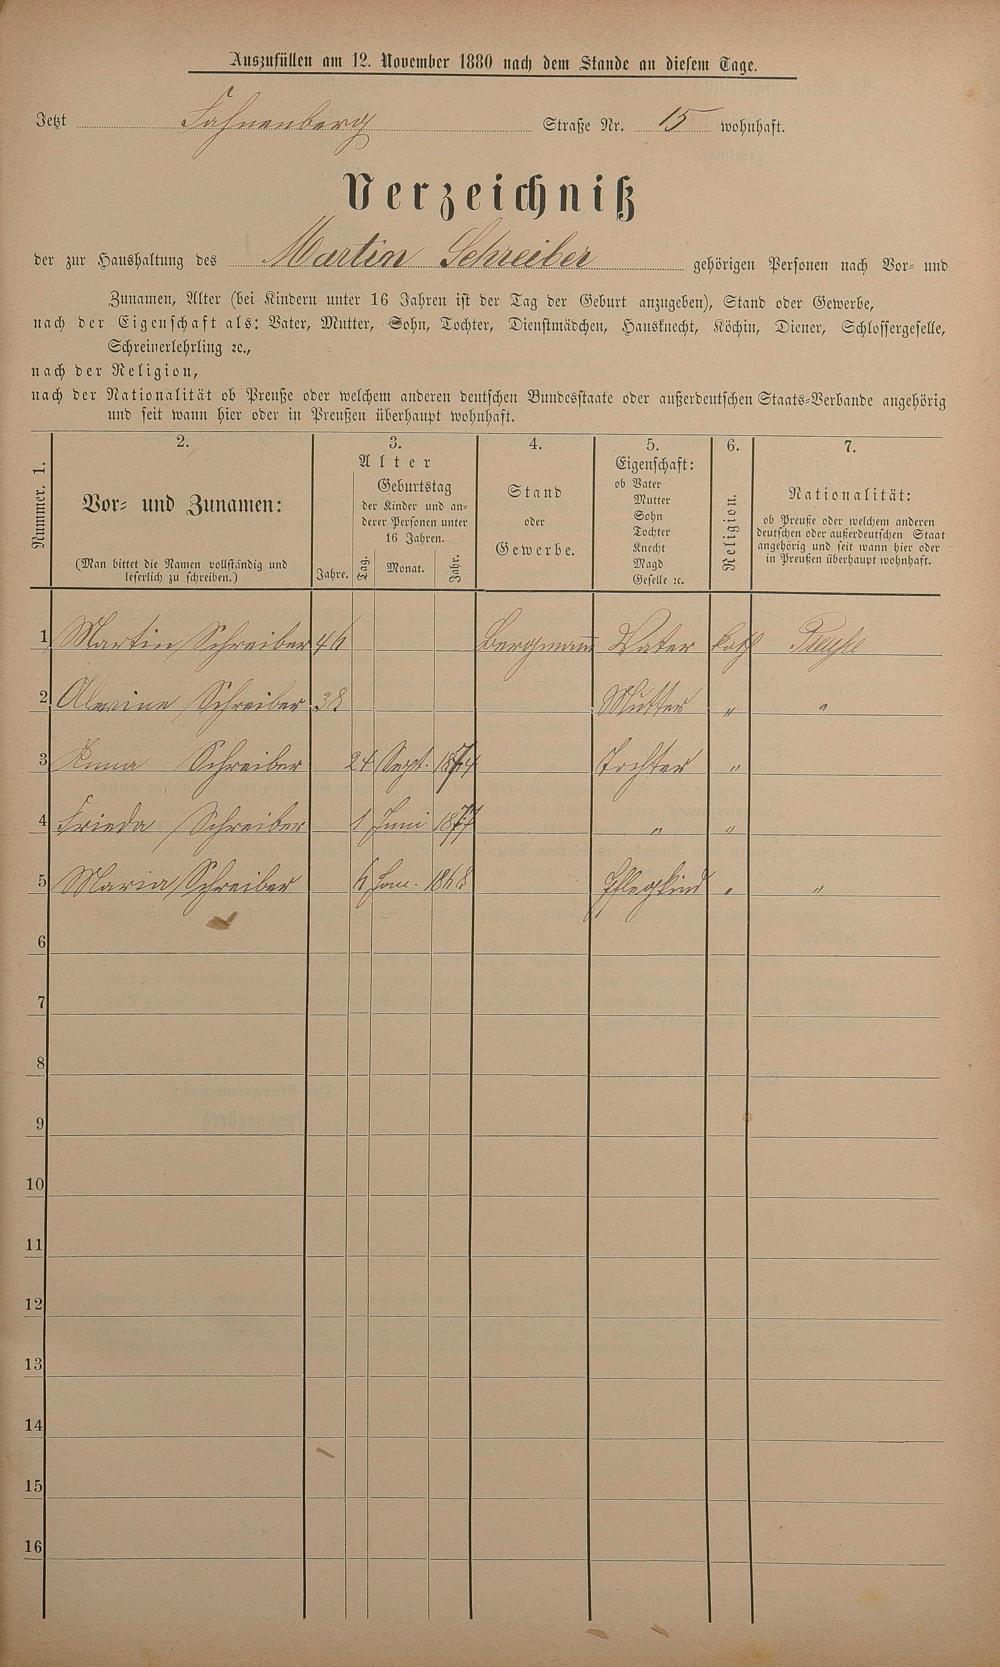 Auszufüllen am 12. November 1880 nach dem Stande an diesem Tage.
Jetzt Fahnenberg Straße Nr. 15 wohnhaft.
Verzeichniß
der zur Haushaltung des Martin Schreiber gehörigen Personen nach Vor- und
Zunamen, Alter (bei Kindern unter 16 Jahren ist der Tag der Geburt anzugeben), Stand oder Gewerbe,
nach der Eigenschaft als: Vater, Mutter, Sohn, Tochter, Dienstmädchen, Hausknecht, Köchin, Diener, Schlossergeselle,
Schreinerlehrling ꝛc.,
nach der Religion,
nach der Nationalität ob Preuße oder welchem anderen deutschen Bundesstaate oder außerdeutschen Staats-Verbande angehörig
und seit wann hier oder in Preußen überhaupt wohnhaft.
Nummer. 1.
2.
Vor- und Zunamen:
(Man bittet die Namen vollständig und
leserlich zu schreiben.)
3.
Alter
Jahre.
Geburtstag
der Kinder und an-
derer Personen unter
16 Jahren.
Tag. Monat. Jahr.
4.
Stand
oder
Gewerbe.
5.
Eigenschaft:
ob Vater
Mutter
Sohn
Tochter
Knecht
Magd
Geselle ꝛc.
6.
Religion.
7.
Nationalität:
ob Preuße oder welchem anderen
deutschen oder außerdeutschen Staat
angehörig und seit wann hier oder
in Preußen überhaupt wohnhaft.
1 Martin Schreiber 46 Bergmann Vater kath Preuße
2 Schreiber 38 Mutter " "
3 Anna Schreiber 24 Sept. 1874 Tochter "
4 Frieda Schreiber 1 Juni 1877 " "
5 Maria Schreiber 6 Jan. 1868 Pflegkind " "
6
7
8
9
10
11
12
13
14
15
16